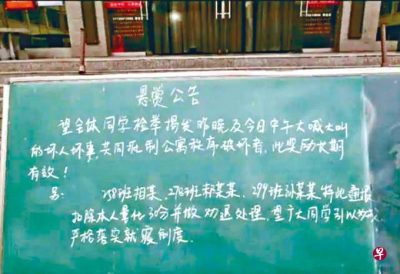 悬赏公告
望全体同学检举揭发昨晚及今日中午大喊大叫
的坏人坏事,共同抵制公寓秩序破坏者,此奖励长期
有效!
另: 258班相某、278班郝某某、299班孙某某特此通报
扣除本人量化30分并做劝退处理,望广大同学引以为戒
严格落实就寝制度.
早